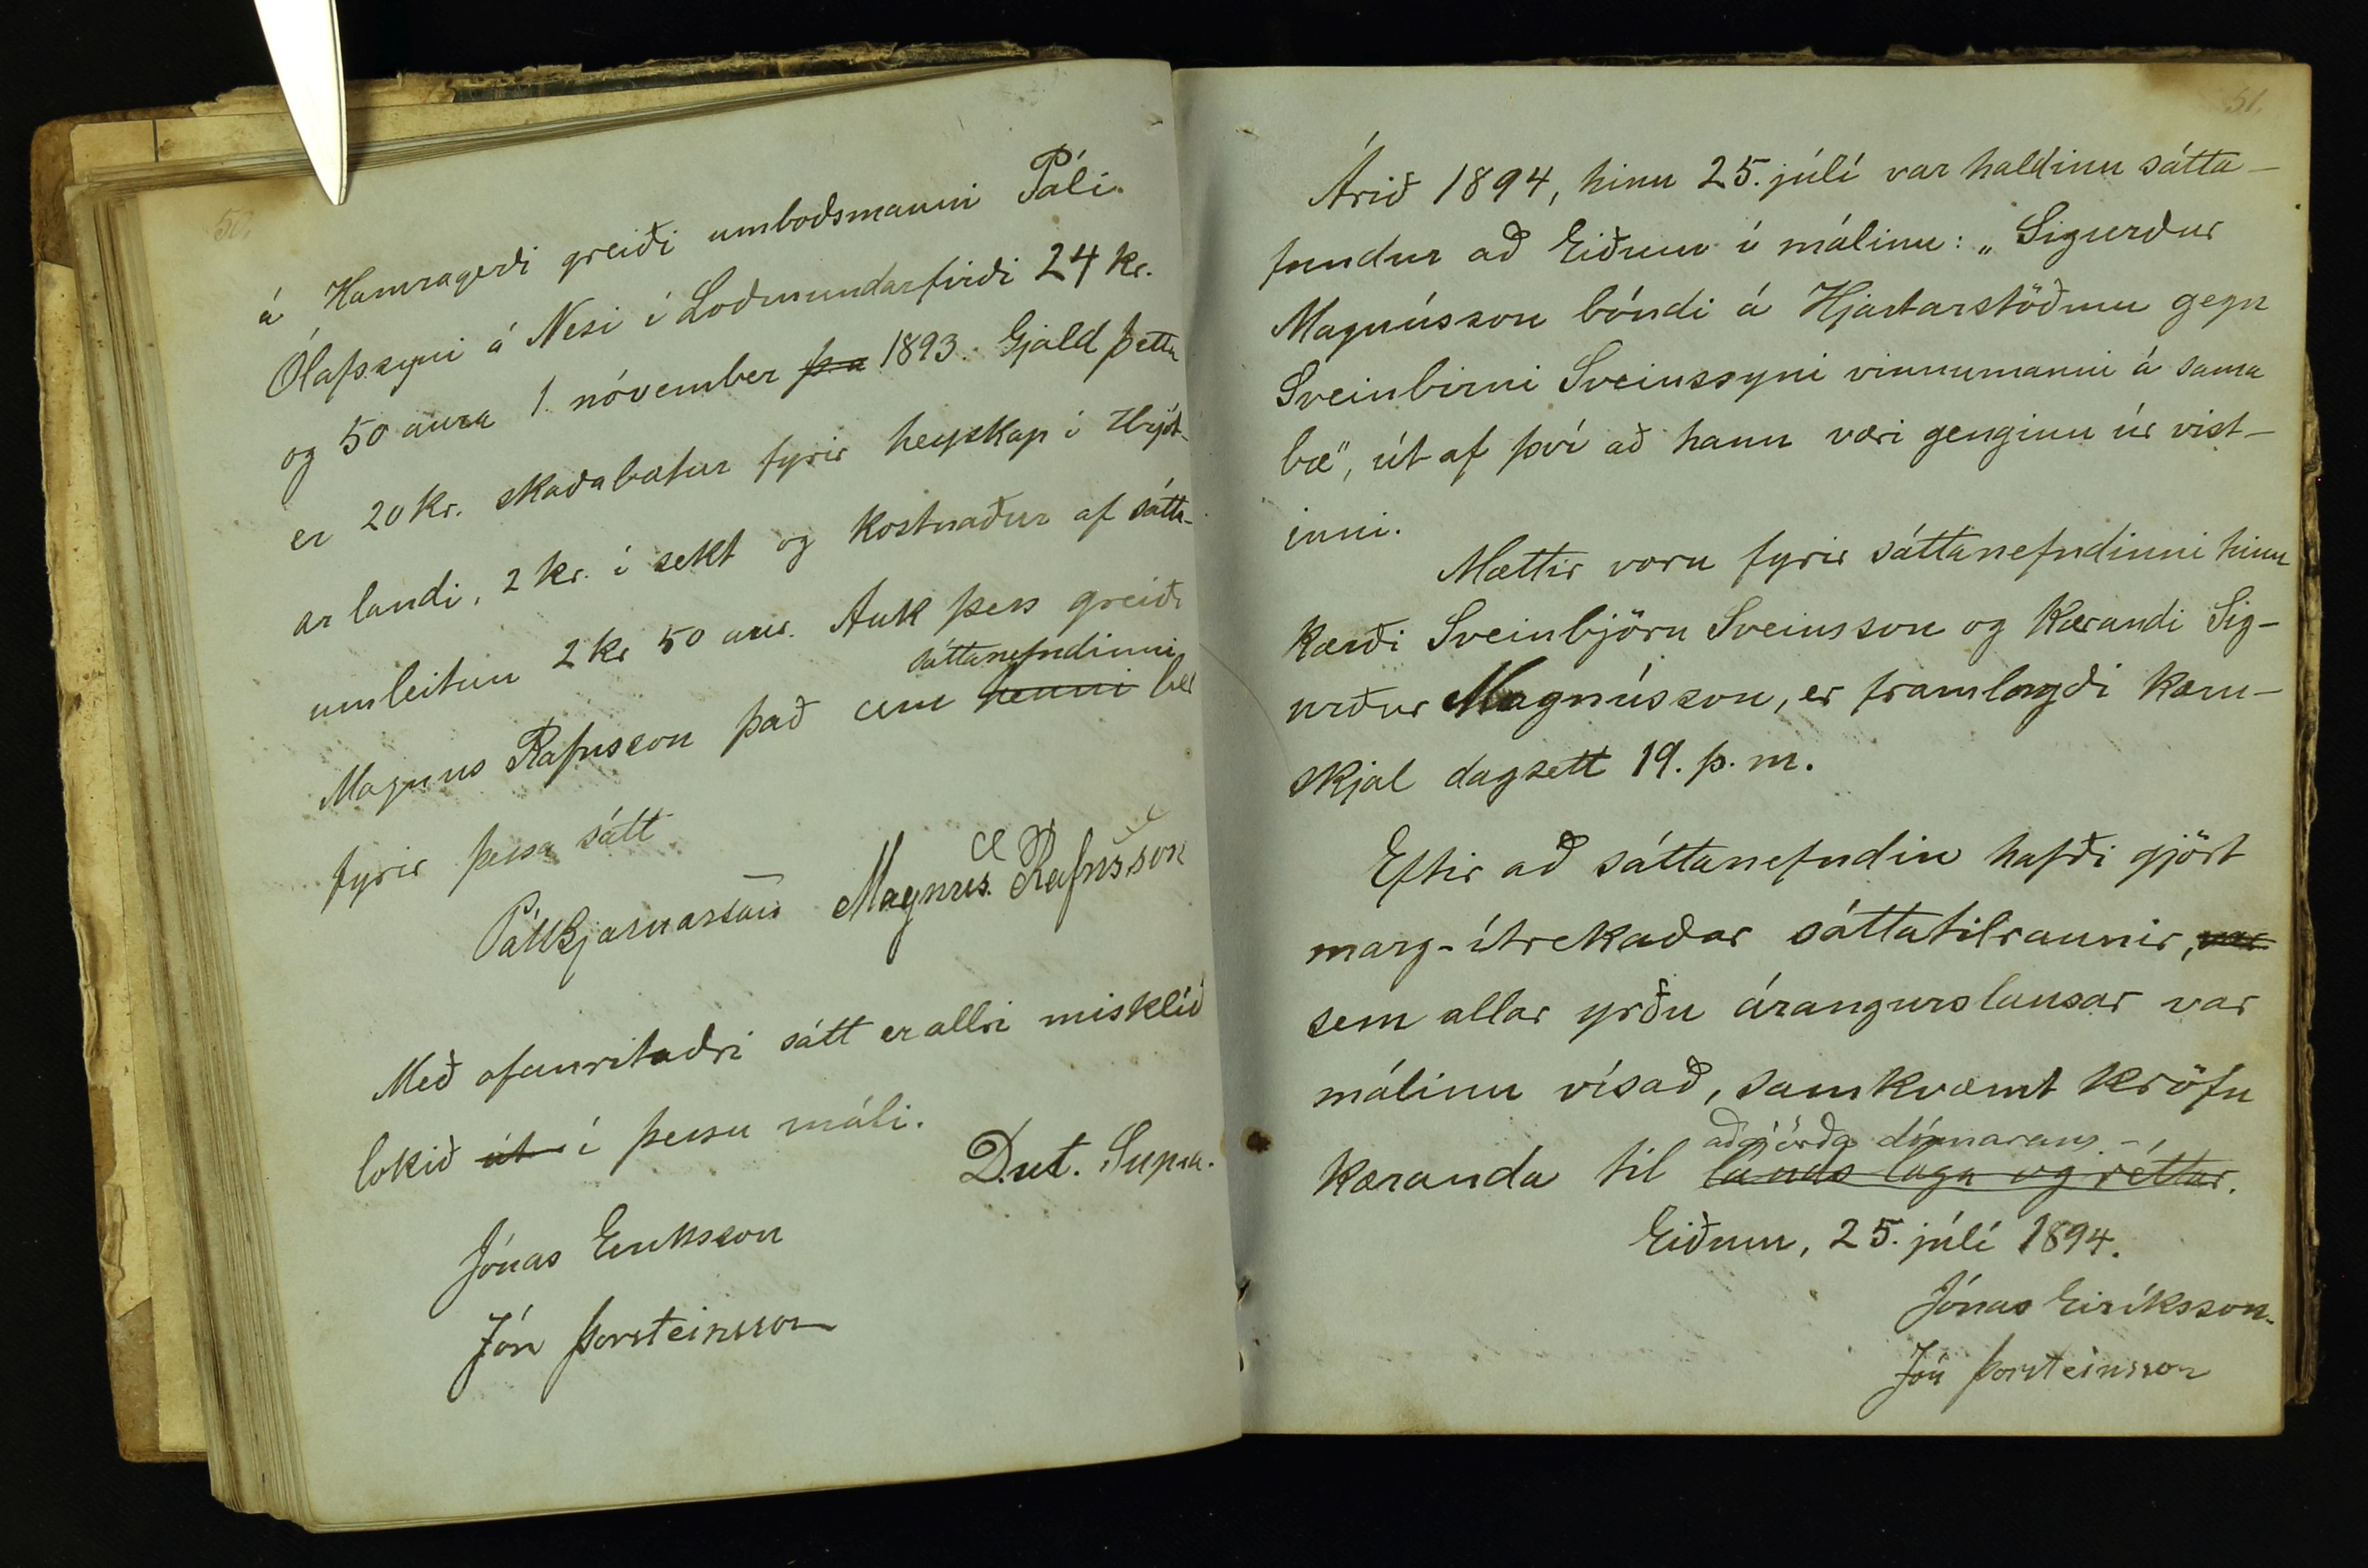 50.
á Hamragerði greiði umboðsmanni Páli
Ólafssyni á Nesi í Loðmundarfirði 24 kr.
og 50 aura 1. nóvember þ.a 1893. Gjald þetta
er 20 kr. skaðabætur fyrir heyskap í Hrjót-
ar landi, 2 kr. í sekt og kostnaður af sátta-
umleitun 2 kr 50 aur. Auk þess greiði
sáttanefndinni
Magnus Rafnsson það sem henni ber
fyrir þessa sátt
Páll Bjarnarson Magnús Rafnsson
Með ofanritaðri sátt er allri misklíð
lokið út í þessu máli.
D.ut. Supra.
Jónas Eiríksson
Jón Þorsteinsson
51.
Árið 1894, hinn 25. júlí var haldinn sátta-
fundur að Eiðum í málinu: „Sigurður
Magnússon bóndi á Hjartarstöðum gegn
Sveinbirni Sveinssyni vinnumanni á sama
bæ", út af því að hann væri genginn úr vist-
inni.
Mættir voru fyrir sáttanefndinni hinn
kærði Sveinbjörn Sveinsson og kærandi Sig-
urður Magnússon, er framlagði kæru-
skjal dagsett 19. þ. m.
Eftir að sáttanefndin hafði gjört
marg-ítrekaðar sáttatilraunir, var
sem allar yrðu árangurslausar var
málinu vísað, samkvæmt kröfu
aðgjörða dómarans -
kæranda til lands laga og réttar.
Eiðum, 25. júlí 1894.
Jónas Eiríksson.
Jón Þorsteinsson